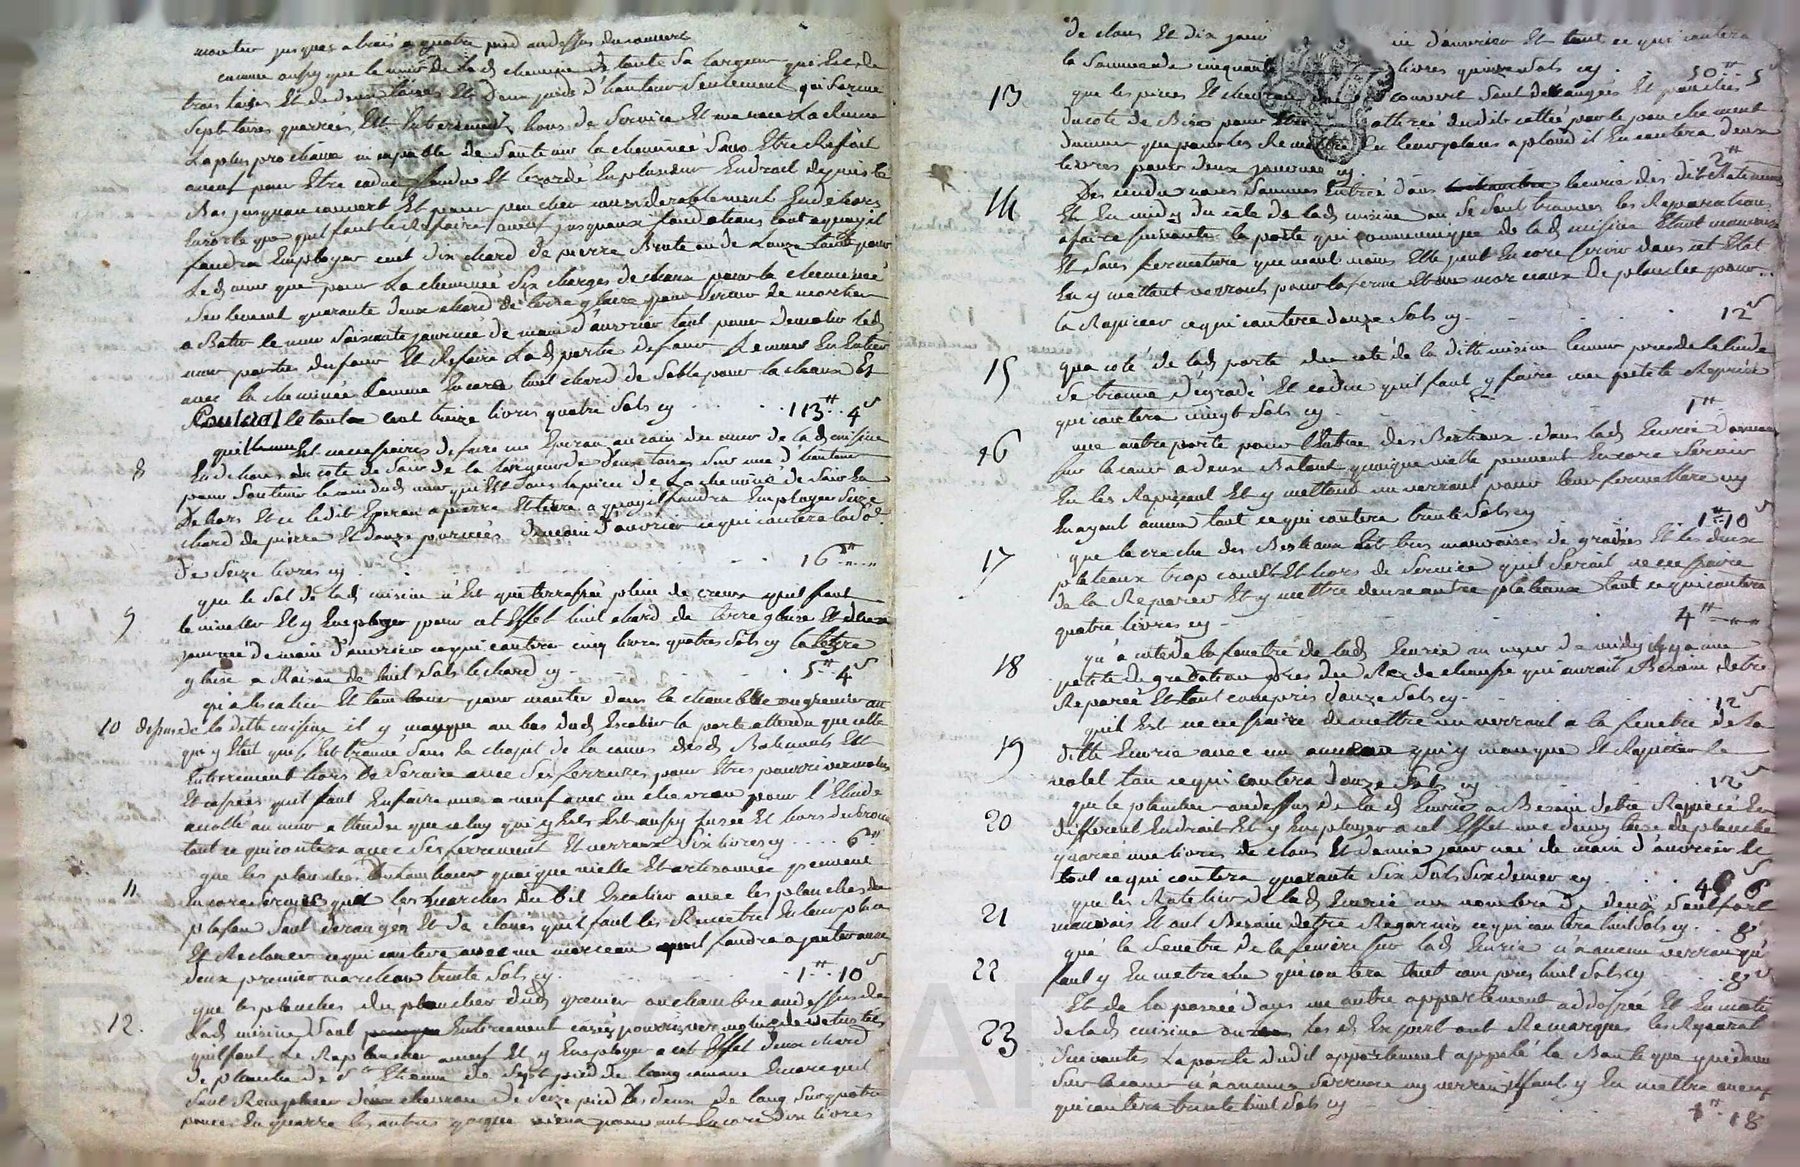 monter jusques a trois a quatre pied audessus du couvert
comme aussy que le mur de lad cheminee de toute sa largeur qui est de
trois toises et de deux toises et deux pieds d'hauteur seulement qui forme
sept toises quarrées est entierement hors de service et menace la ruine
la plus prochaine incapable de soutenir la cheminée sans etre refait
aneuf pour etre cadue fondue et lezardé en plusieur endroit depuis le
bas jusquau couvert et pour pancher considerablement en dehors
en sorte que quil faut le refaire aneuf jusquaux fondations tout a quoy il
faudra employer cent dix chard de pierre brute ou de
led mur que pour la cheminée six charges de chaux pour la cheminée
seulement quarante deux chard de terre glaise pour servir de mortier
a batir le mur soixante journée de main d'ouvrier tant pour demolir led
mur partie du four et refaire lad partie de four le mur en entier
avec la cheminée comme encore huit chard de sable pour la chaux et
le tout cent treize livres quatre sols cy . . . 113# 4s
quil est necessaire de faire un eperon au coin du mur de lad cuisine
8 en dehors du cote de soir de la largeur de deux toises sur une d'hauteur
pour soutenir le coin dud mur qui est sous la piece de la cheminé de soir en
dehors et ce ledit eperon a pierre et terre a quoy il faudra employer seize
chard de pierre et douze journées de main d'ouvrier ce qui coutera la so
de seize livres cy . . . 16#
que le sol de lad cuisine n'est que terrassée plein de creux quil faut
9 le niveler et y employer pour cet effet huit chard de terre glaise et deux
journée de main d'ouvrier ce qui coutera cinq livre quatre sols cy la terre
glaise a raison de huit sols le chard cy . . . 5# 4s
qu'a l'escalier et tambour pour monter dans la chambre ou grenier au
10 dessus de la ditte cuisine il y manque au bas dud escalier la porte attendu que celle
qui y etoit qui s'est trouvée sous le chapit de la cour desd batiments est
entierement hors de service avec ses ferrures pour etre pourri vermolus
et cassées quil faut en faire une a neuf avec un chevron pour l'etude
accolté au mur attendu que celuy qui y est est aussy pourri et hors de service
tout ce qui coutera avec ses ferrement et verroux six livres cy . . . . 6#
que les planches du tambour quoique vielle et
11 encore servir que les marches dudit escalier avec les planches du
plafon sont derangés et de cloués quil faut les remettre en leur place
et reclouer ce qui coutera avec un morceau quil faudra ajouter aux
deux premier marches trente sols cy . . . 1# 10s
que les planches du plancher dud grenier ou chambre audessus de
12. lad cuisine sont entierement cassés pourries vermolues
quil faut le replancher a neuf et y employer a cet effet deux chard
de planche de St Etienne de sept pied de long comme encore quil
faut remplacer deux chevron de seize pied les deux de long sur quatre
pouces en quarré les autres quoique vieux pouvant encore dix livres
de clous et dix jour . . . d'ouvrier et tout ce qui coutera
la somme de cinquante livres quinze sols cy . . . 50# 5s
13 que les pieces et chevron du couvert sont derangés et
du cote de bise pour etre attirée dudit cotté par le panchement
du mur que pour les remettre en leur places a plond il en coutera deux
livres pour deux journée cy . . . 2#
14 De cendu nous sommes entrée dans l'ecurie des dit batiment
et en midy du cote de lad cuisine ou se sont trouvés les reparations
a faire suivante la porte qui communique de lad cuisine etant mauvaise
et sans fermeture que neant moins elle peut encore servir dans cet etat
en y mettant verroux pour la ferme et un morceaux de planche pour
la rapiecer ce qui coutera douze sols cy . . . 12s
15 qua coté de lad porte du coté de la ditte cuisine le mur
se trouve degradé et cadue quil faut y faire une petite reprise
qui coutera vingt sols cy . . . 1#
16 une autre porte pour l'entrée des bestiaux dans lad ecurie donnant
sur la cour a deux batant quoique vielle peuvent encore servir
en les rapieçant et y mettant un verrout pour leur fermetture ny
en ayant aucun tout ce qui coutera trente sols cy . . . 1# 10s
17 que la creche des bestiaux est tres mauvaises de gradées et les deux
plateaux trop court et hors de service quil seroit necessaire
de la reparer et y mettre deux autre plateaux tout ce qui coutera
quatre livres cy . . . 4#
18 qu'a coté de la fenetre de lad ecurie au mur de midy il y a une
petite degradation pres du rez de chaussé qui auroit besoin detre
reparée et tout compris douze sols cy . . . 12s
19 quil est necessaire de mettre un verrout a la fenetre de la
ditte ecurie avec un anneau qui y manque et rapiecer le
volet tou ce qui coutera douze sols cy . . . 12s
20 que le plancher audessus de lad ecurie a besoin detre rapiecé en
different endroit et y employer a cet effet une demy toise de planche
quarrée une livres de clous et demie journeé de main d'ouvrier le
tout ce qui coutera quarante six sols six denier cy . . . 46s 6
21 que les ratelier de lad ecurie au nombre de deux sont fort
mauvais et ont besoin detre regarnis ce qui coutera huit sols cy . . 8s
22 que la fenetre de la feniere sur lad ecurie n'a aucun verrou qu'il
faut y en metre un qui coutera tout compris huit sols cy . . . 8s
23 Et de la passée dans un autre appartement addossée et en
de lad cuisine ou les d expert ont remarqués les reparat
suivantes la porte dudit appartement appelé la boutique qui donne
sur la cour n'a aucune serrure ny verroux il faut y en mettre aneuf
qui coutera trente huit sols cy . . . 1# 18